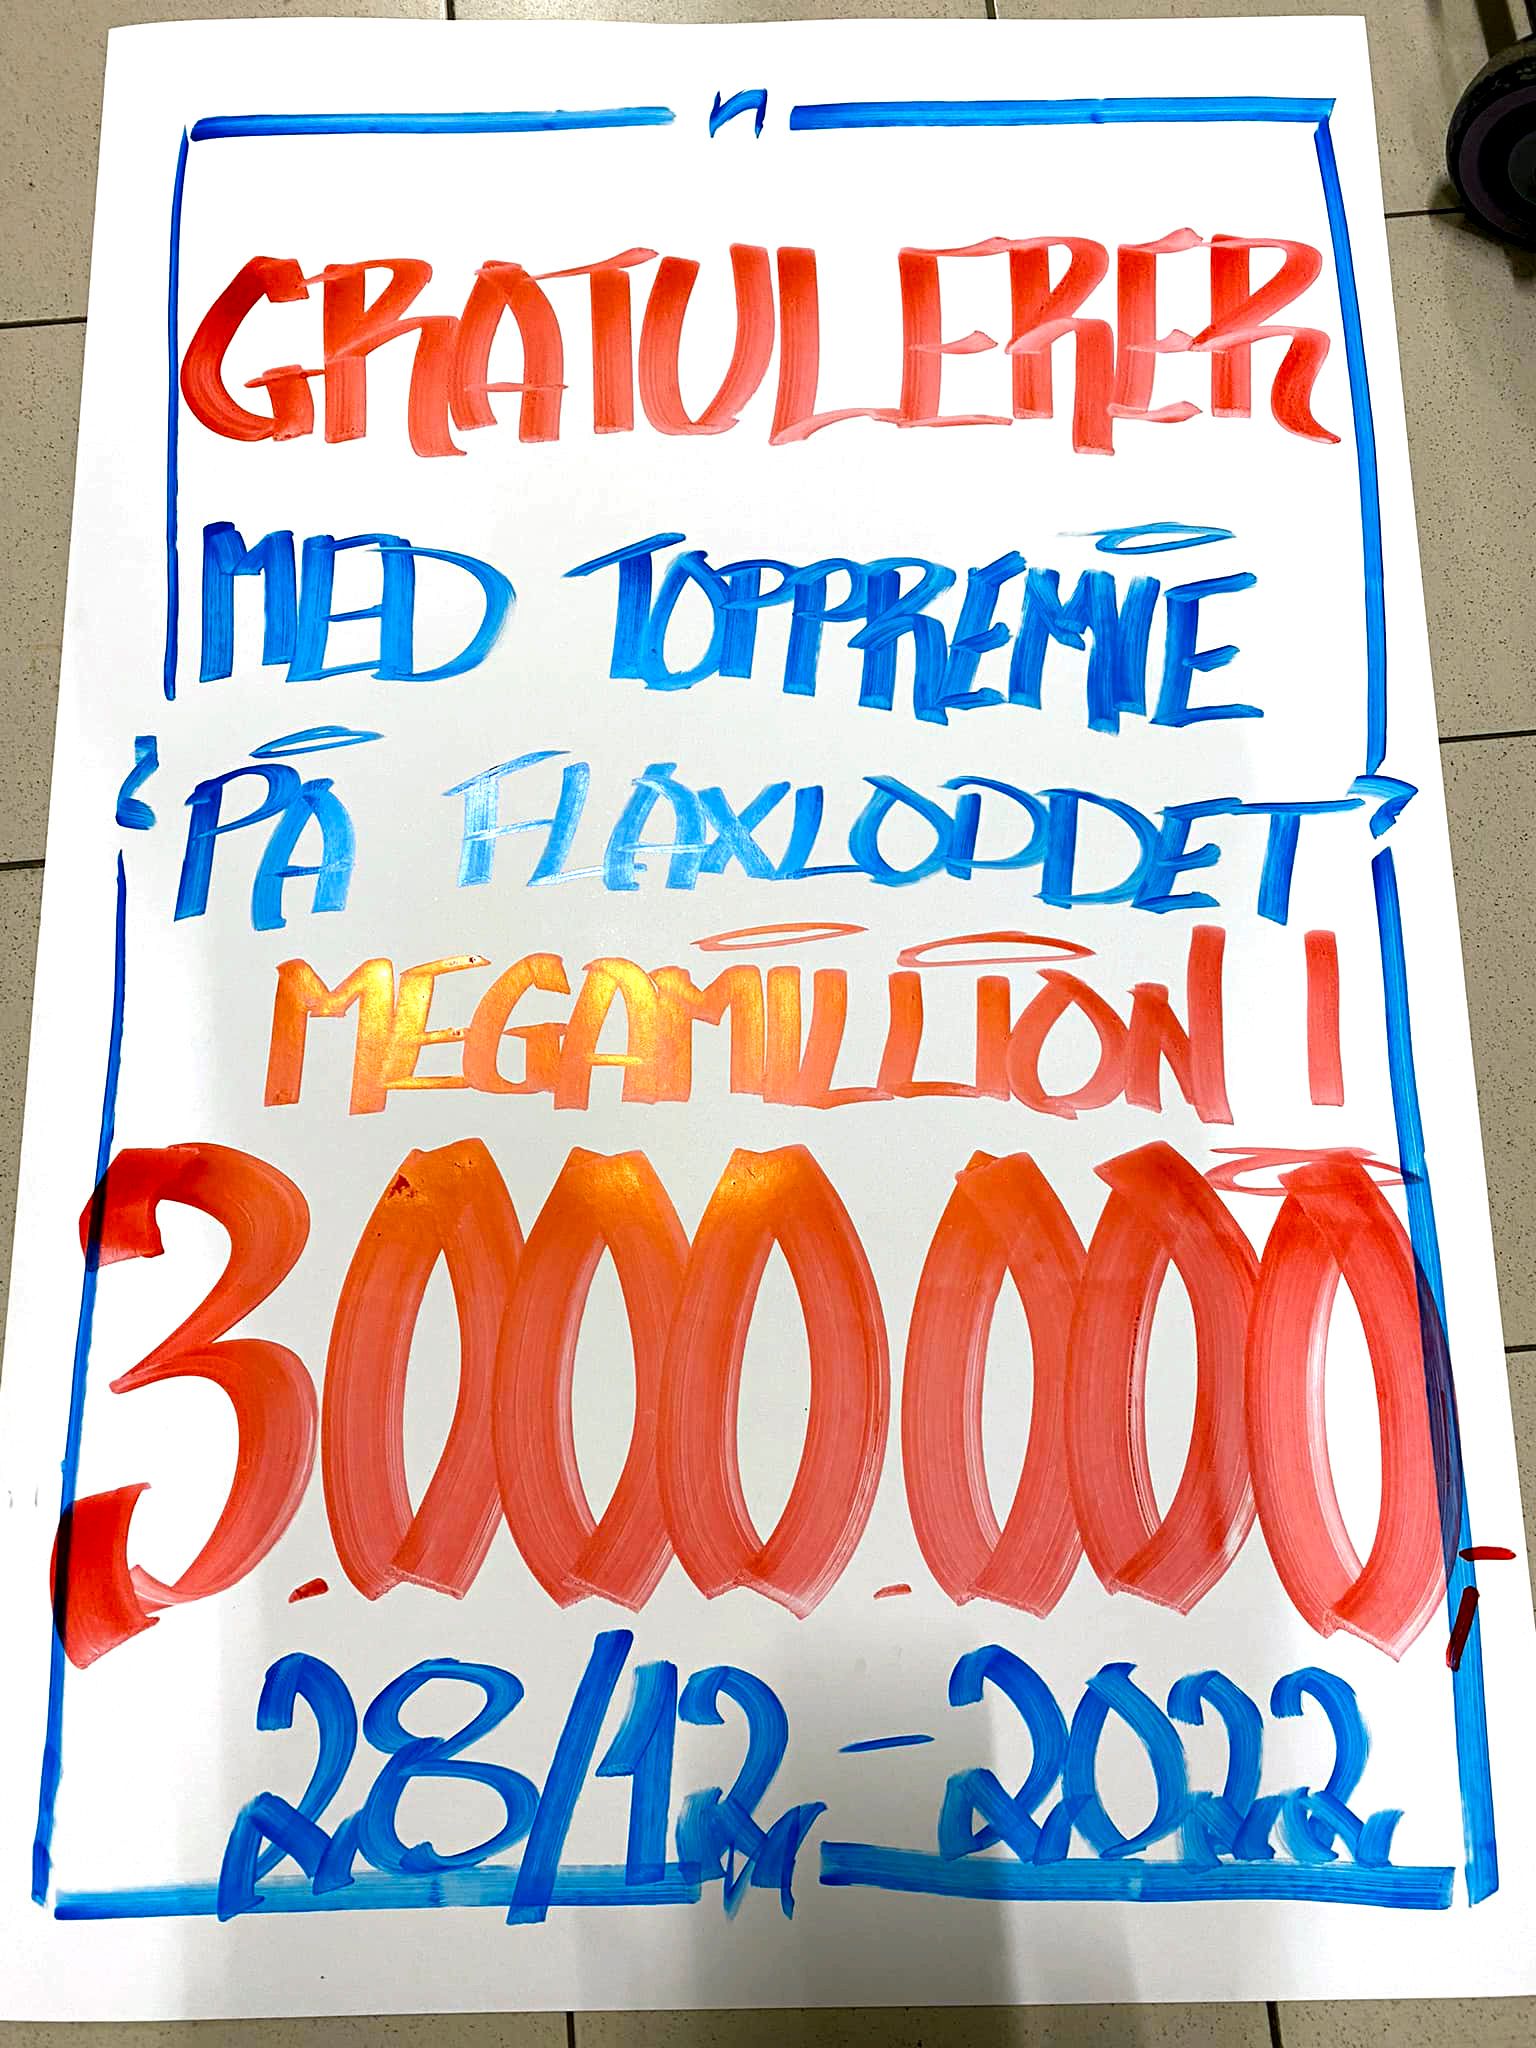 GRATULERER
MED TOPPREMIE
PÅ FLAXLODDET
MEGAMILLION!
3.000.000,-
28/12-2022